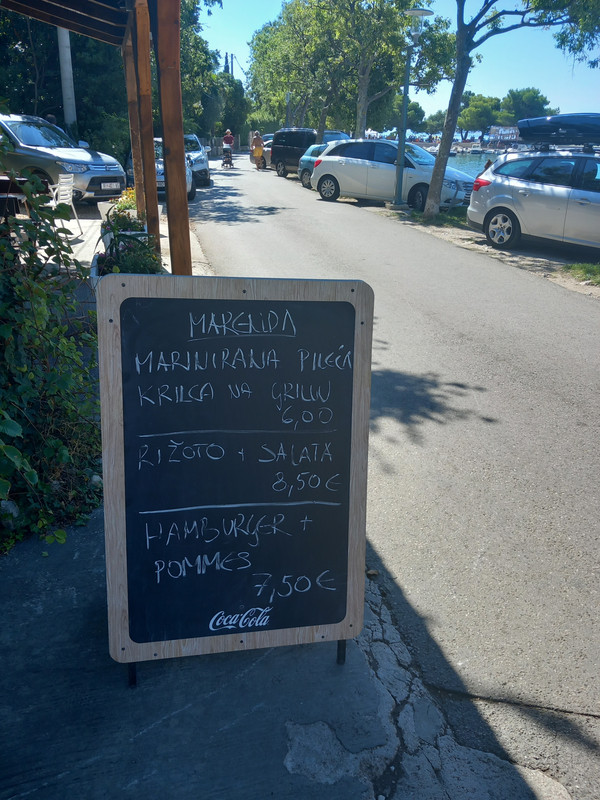 MARENDA
MARINIRANA PILEĆA
KRILCA NA GRILLU
6,00
RIŽOTO + SALATA
8,50€
HAMBURGER +
POMMES
7,50€
Coca-Cola